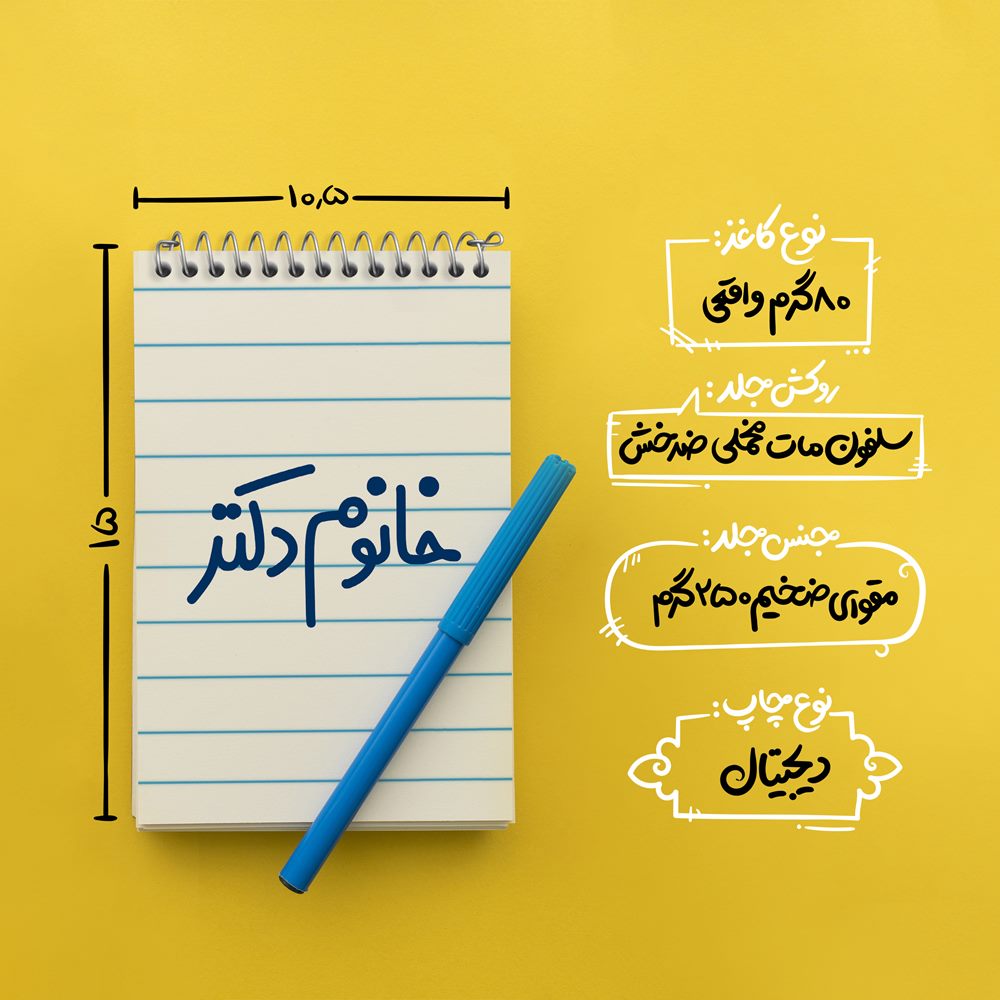 ۱۰٫۵
۱۵
خانوم دکتر
نوع کاغذ:
۸۰گرم واقعی
روکش جلد:
سلفون مات مخملی ضدخش
جنس جلد:
مقوای ضخیم ۲۵۰گرم
نوع چاپ:
دیجیتال